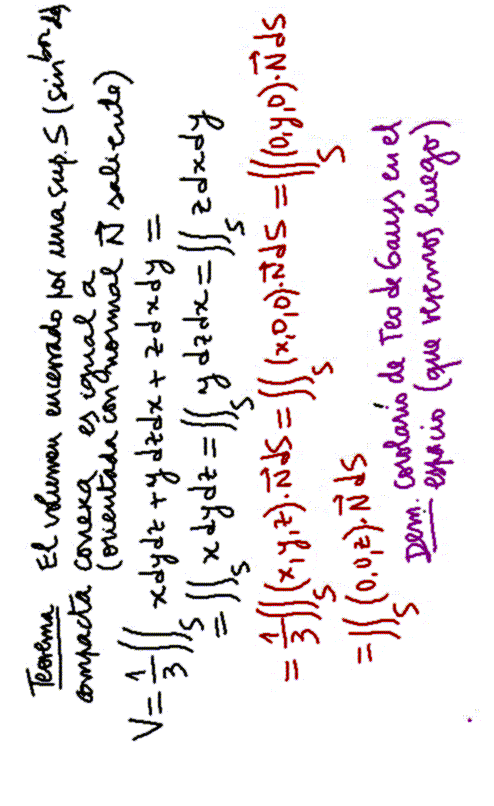 Teorema El volumen encerrado por una sup. S (sin borde)
compacta conexa es igual a
(orientada con normal N⃗ saliente)
V = 1/3 ∬_S x dy dz + y dz dx + z dx dy =
= ∬_S x dy dz = ∬_S y dz dx = ∬_S z dx dy
= 1/3 ∬_S (x,y,z)·N⃗ dS = ∬_S (x,0,0)·N⃗ dS = ∬_S (0,y,0)·N⃗ dS
= ∬_S (0,0,z)·N⃗ dS
Dem. Corolario de Teo de Gauss en el
espacio (que veremos luego)